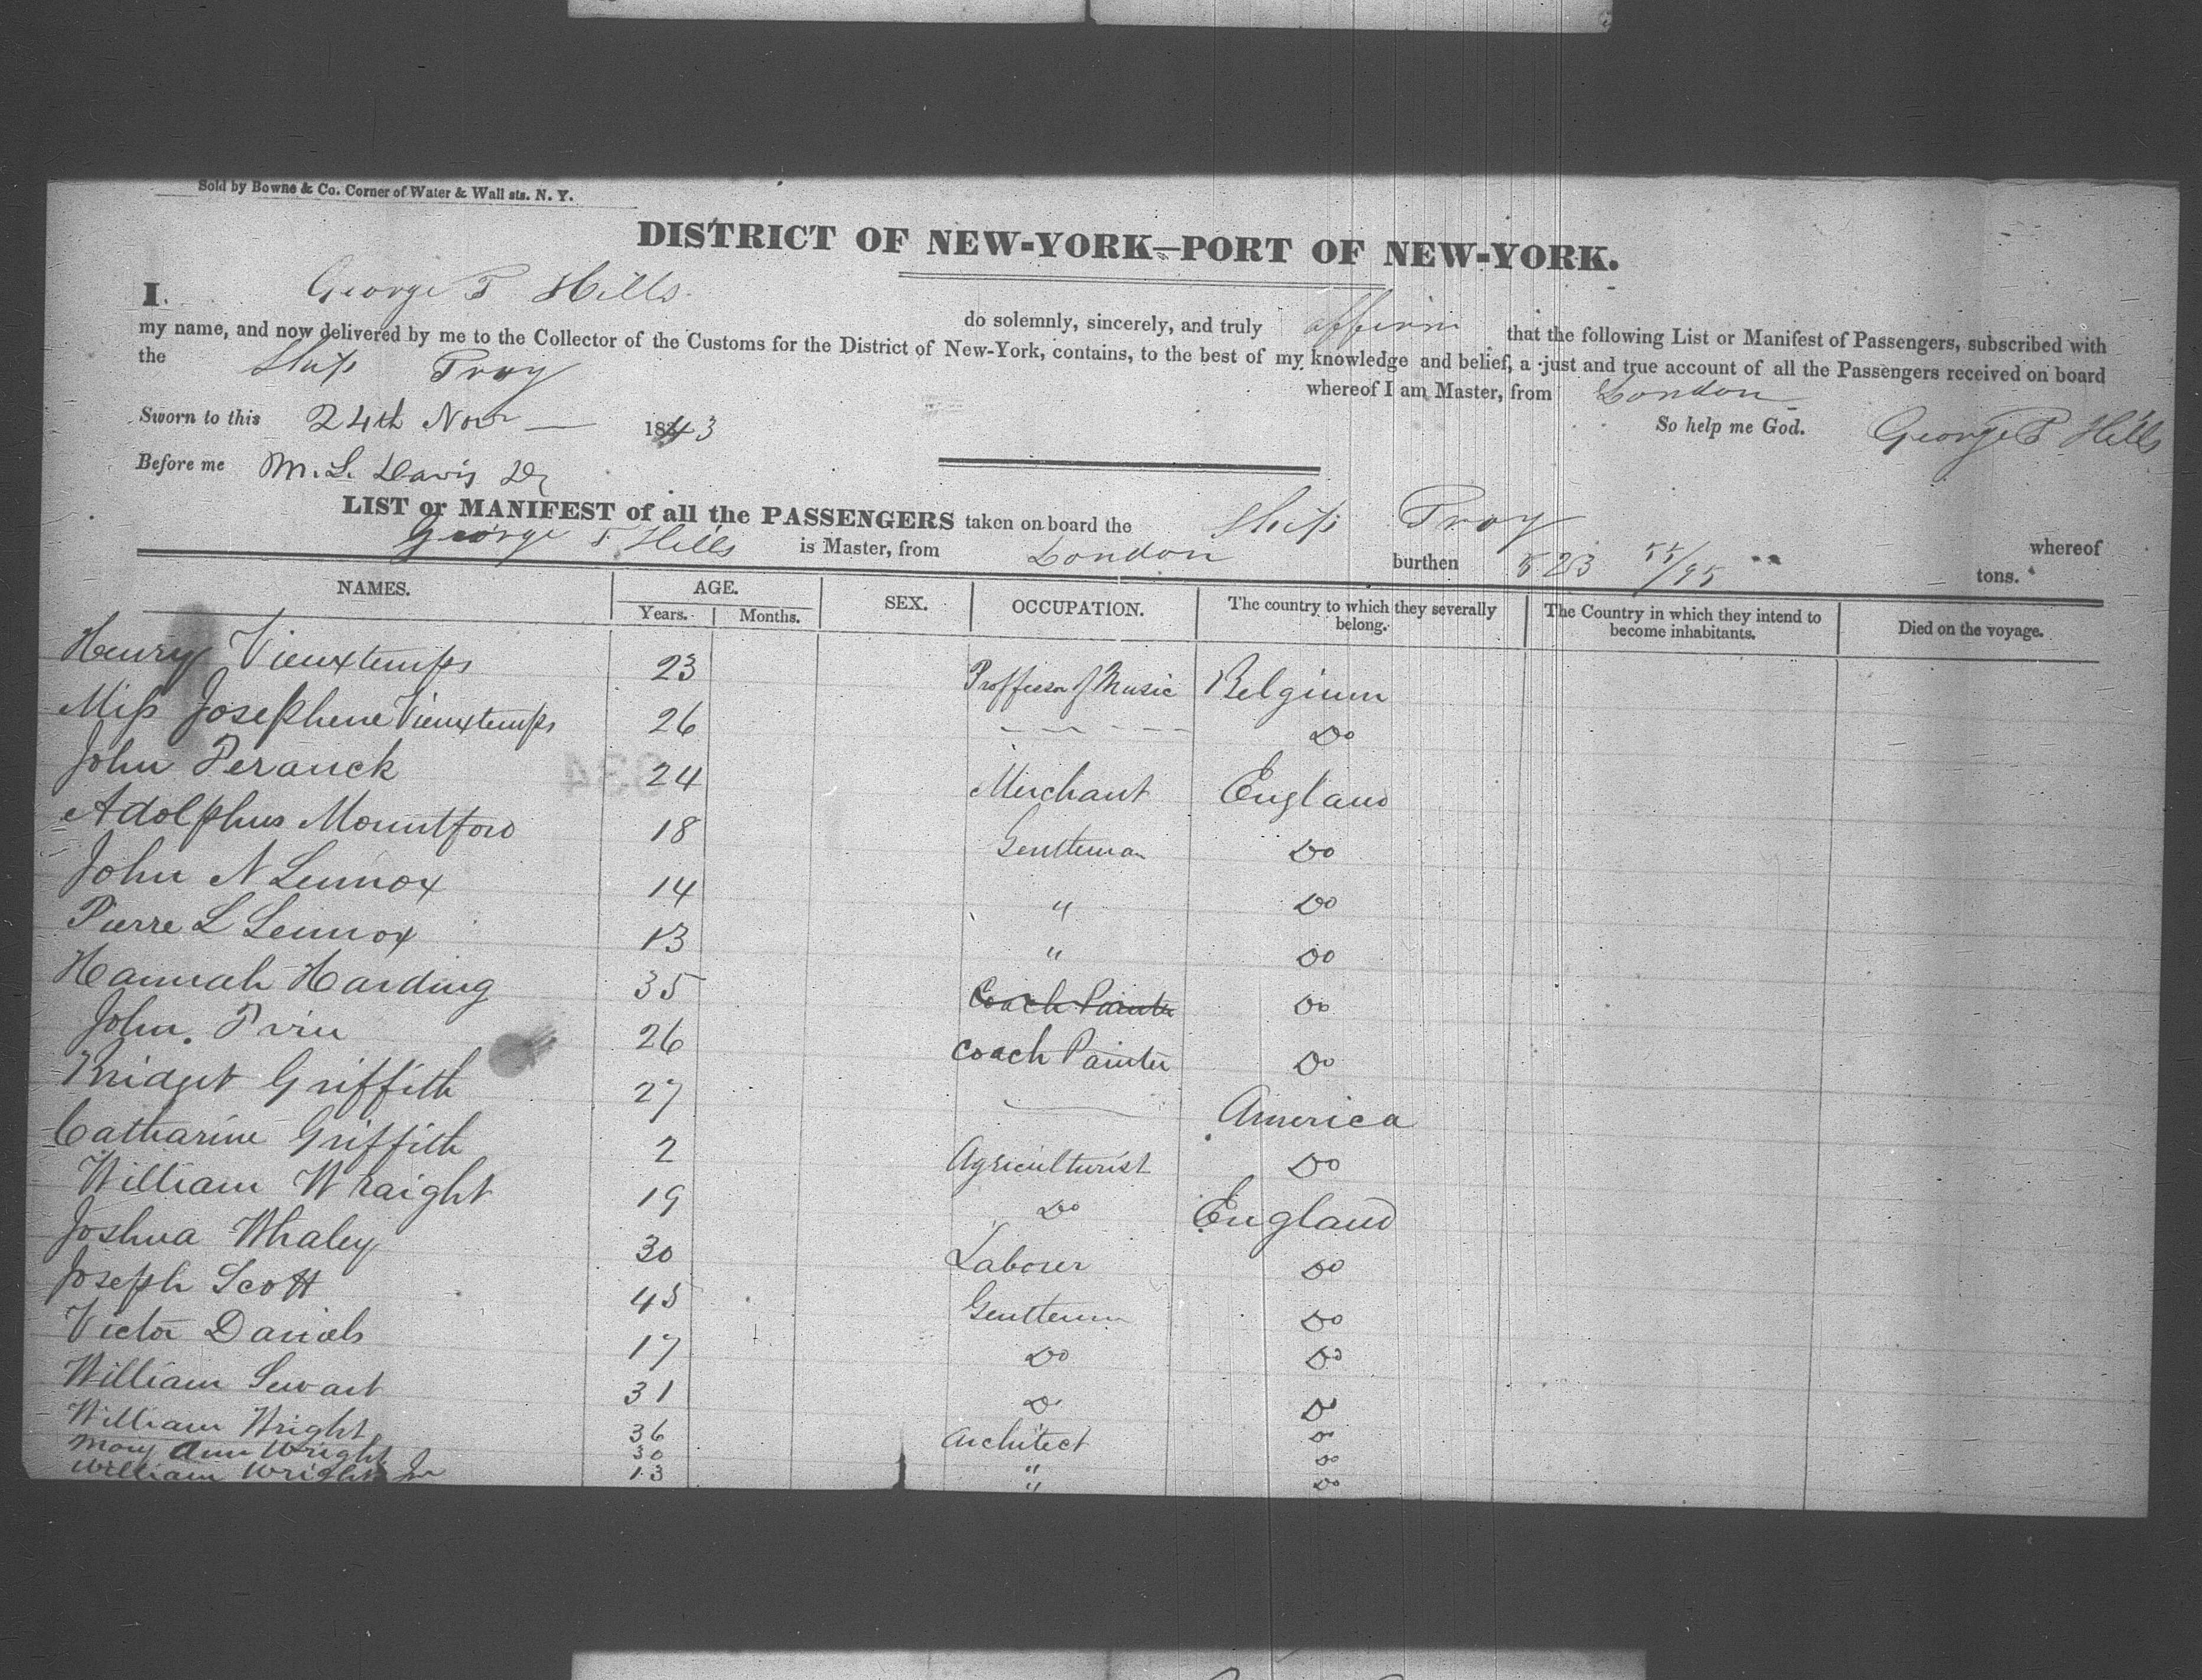 Sold by Bowne & Co. Corner of Water & Wall sts. N. Y.
DISTRICT OF NEW-YORK—PORT OF NEW-YORK.
I. George T Hills do solemnly, sincerely, and truly affirm that the following List or Manifest of Passengers, subscribed with
my name, and now delivered by me to the Collector of the Customs for the District of New-York, contains, to the best of my knowledge and belief, a just and true account of all the Passengers received on board
the Ship Troy whereof I am Master, from London
Sworn to this 24th Nov 1843 So help me God. George T Hills
Before me M. L. Davis
LIST or MANIFEST of all the PASSENGERS taken on board the Ship Troy whereof
George T. Hills is Master, from London burthen 523 55/95 tons.
NAMES. AGE. SEX. OCCUPATION. The country to which they severally belong. The Country in which they intend to become inhabitants. Died on the voyage.
Years. Months.
Henry Vieuxtemps 23 Proffesor of Music Belgium
Miss Josephene Vieuxtemps 26 Do
John Peranck 24 Merchant England
Adolphus Mountford 18 Gentleman Do
John N Lennox 14 " Do
Pierre L Lennox 13 " Do
Hannah Harding 35 Coach Painter Do
John 26 Coach Painter Do
Bridget Griffith 27 America
Catharine Griffith 2 Agriculturist Do
William Wraight 19 Do England
Joshua Whaley 30 Laborer Do
Joseph Scott 45 Gentleman Do
Victor Daniels 17 Do Do
William Sewart 31 Do Do
William Wright 36 Architect Do
Mary Ann Wright 30 " Do
William Wright Jr 13 " Do